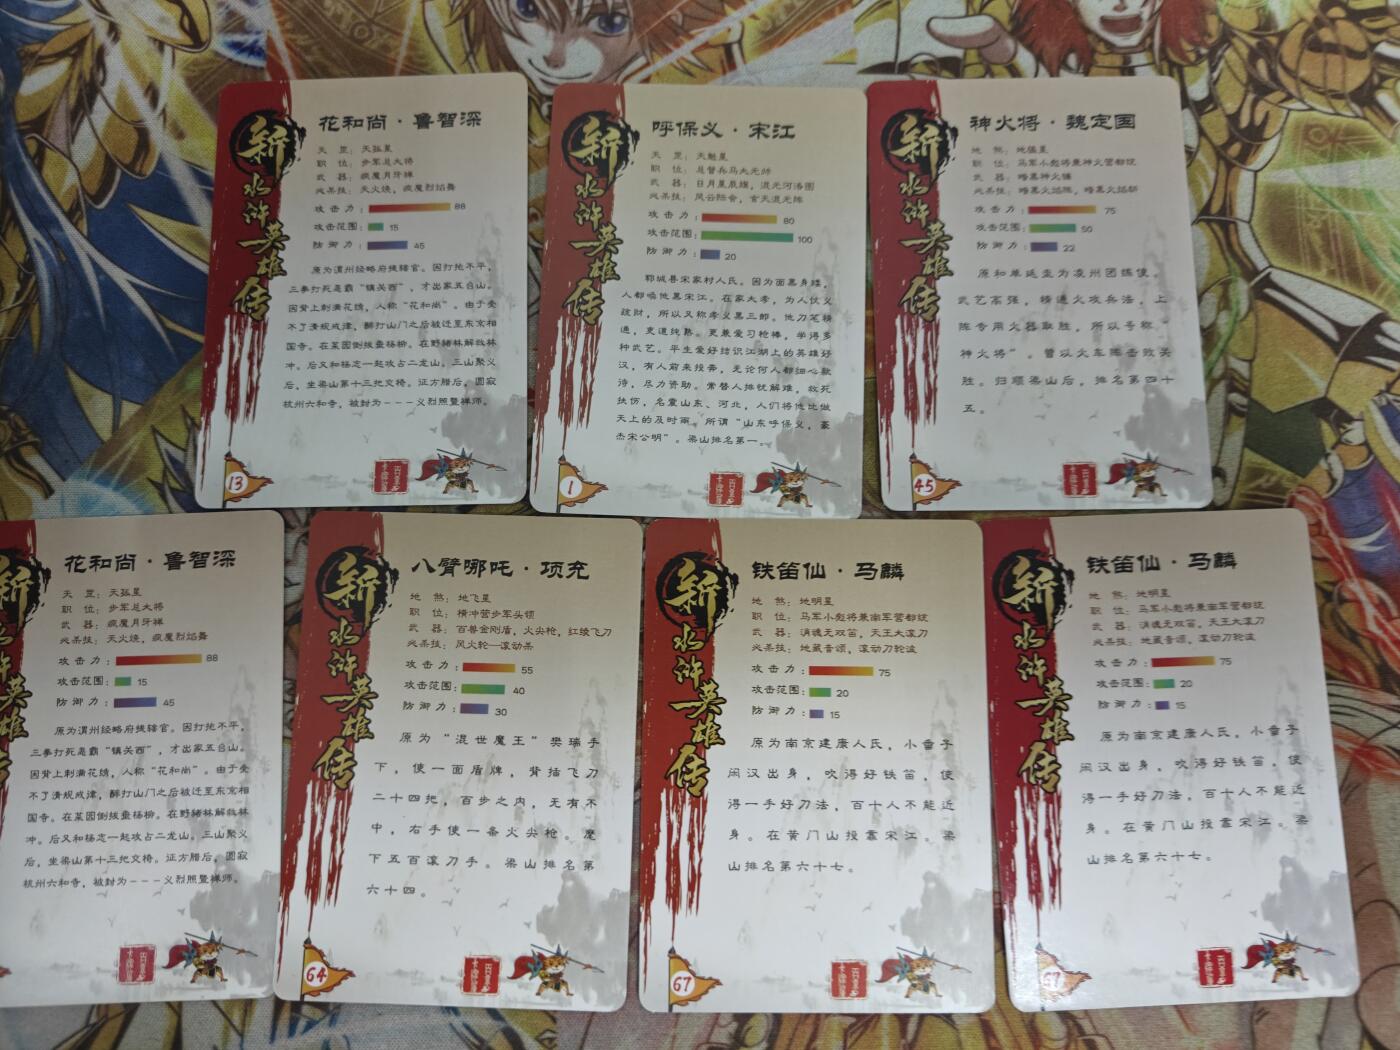 新水浒英雄传
花和尚·鲁智深
天 罡：天孤星
职 位：步军总大将
武 器：疯魔月牙禅
必杀技：天火焕，疯魔烈焰舞
攻击力：88
攻击范围：15
防御力：45
原为渭州经略府提辖官。因打抱不平，
三拳打死恶霸“镇关西”，才出家五台山。
因背上刺满花绣，人称“花和尚”。由于受
不了清规戒律，醉打山门之后被迁至东京相
国寺。在菜园倒拔垂杨柳。在野猪林解救林
冲。后又和杨志一起攻占二龙山。三山聚义
后，坐梁山第十三把交椅。征方腊后，圆寂
杭州六和寺，被封为---义烈照暨禅师。
13
新水浒英雄传
呼保义·宋江
天 罡：天魁星
职 位：总督兵马大元帅
武 器：日月星辰雄，混元河洛图
必杀技：风云际会，玄天混元阵
攻击力：80
攻击范围：100
防御力：20
郓城县宋家村人氏。因为面黑身矮，
人都唤他黑宋江。在家大孝，为人仗义
疏财，所以又称孝义黑三郎。他刀笔精
通，吏道纯熟。更兼爱习枪棒，学得多
种武艺。平生爱好结识江湖上的英雄好
汉，有人前来投奔，无论何人都细心款
待，尽力资助。常替人排忧解难，救死
扶伤，名震山东、河北，人们将他比做
天上的及时雨，所谓“山东呼保义，豪
杰宋公明”。梁山排名第一。
1
新水浒英雄传
神火将·魏定国
地 煞：地猛星
职 位：马军小彪将兼神火营都统
武 器：暗黑神火锤
必杀技：暗黑火焰阵，暗黑火焰斩
攻击力：75
攻击范围：50
防御力：22
原和单廷圭为凌州团练使。
武艺高强，精通火攻兵法，上
阵专用火器取胜，所以号称“
神火将”。曾以火车阵击败关
胜。归顺梁山后，排名第四十
五。
45
花和尚·鲁智深
天 罡：天孤星
职 位：步军总大将
武 器：疯魔月牙禅
必杀技：天火焕，疯魔烈焰舞
攻击力：88
攻击范围：15
防御力：45
原为渭州经略府提辖官。因打抱不平，
三拳打死恶霸“镇关西”，才出家五台山。
因背上刺满花绣，人称“花和尚”。由于受
不了清规戒律，醉打山门之后被迁至东京相
国寺。在菜园倒拔垂杨柳。在野猪林解救林
冲。后又和杨志一起攻占二龙山。三山聚义
后，坐梁山第十三把交椅。征方腊后，圆寂
杭州六和寺，被封为---义烈照暨禅师。
新水浒英雄传
八臂哪吒·项充
地 煞：地飞星
职 位：横冲营步军头领
武 器：百兽金刚盾，火尖枪，红绫飞刀
必杀技：风火轮—滚动杀
攻击力：55
攻击范围：40
防御力：30
原为“混世魔王”樊瑞手
下，使一面盾牌，背插飞刀
二十四把，百步之内，无有不
中，右手使一条火尖枪。麾
下五百滚刀手。梁山排名第
六十四。
64
新水浒英雄传
铁笛仙·马麟
地 煞：地明星
职 位：马军小彪将兼南军营都统
武 器：消魂无双笛，天王大滚刀
必杀技：地藏音颂，滚动刀轮波
攻击力：75
攻击范围：20
防御力：15
原为南京建康人氏，小番子
闲汉出身，吹得好铁笛，使
得一手好刀法，百十人不能近
身。在黄门山投靠宋江。梁
山排名第六十七。
67
新水浒英雄传
铁笛仙·马麟
地 煞：地明星
职 位：马军小彪将兼南军营都统
武 器：消魂无双笛，天王大滚刀
必杀技：地藏音颂，滚动刀轮波
攻击力：75
攻击范围：20
防御力：15
原为南京建康人氏，小番子
闲汉出身，吹得好铁笛，使
得一手好刀法，百十人不能近
身。在黄门山投靠宋江。梁
山排名第六十七。
67